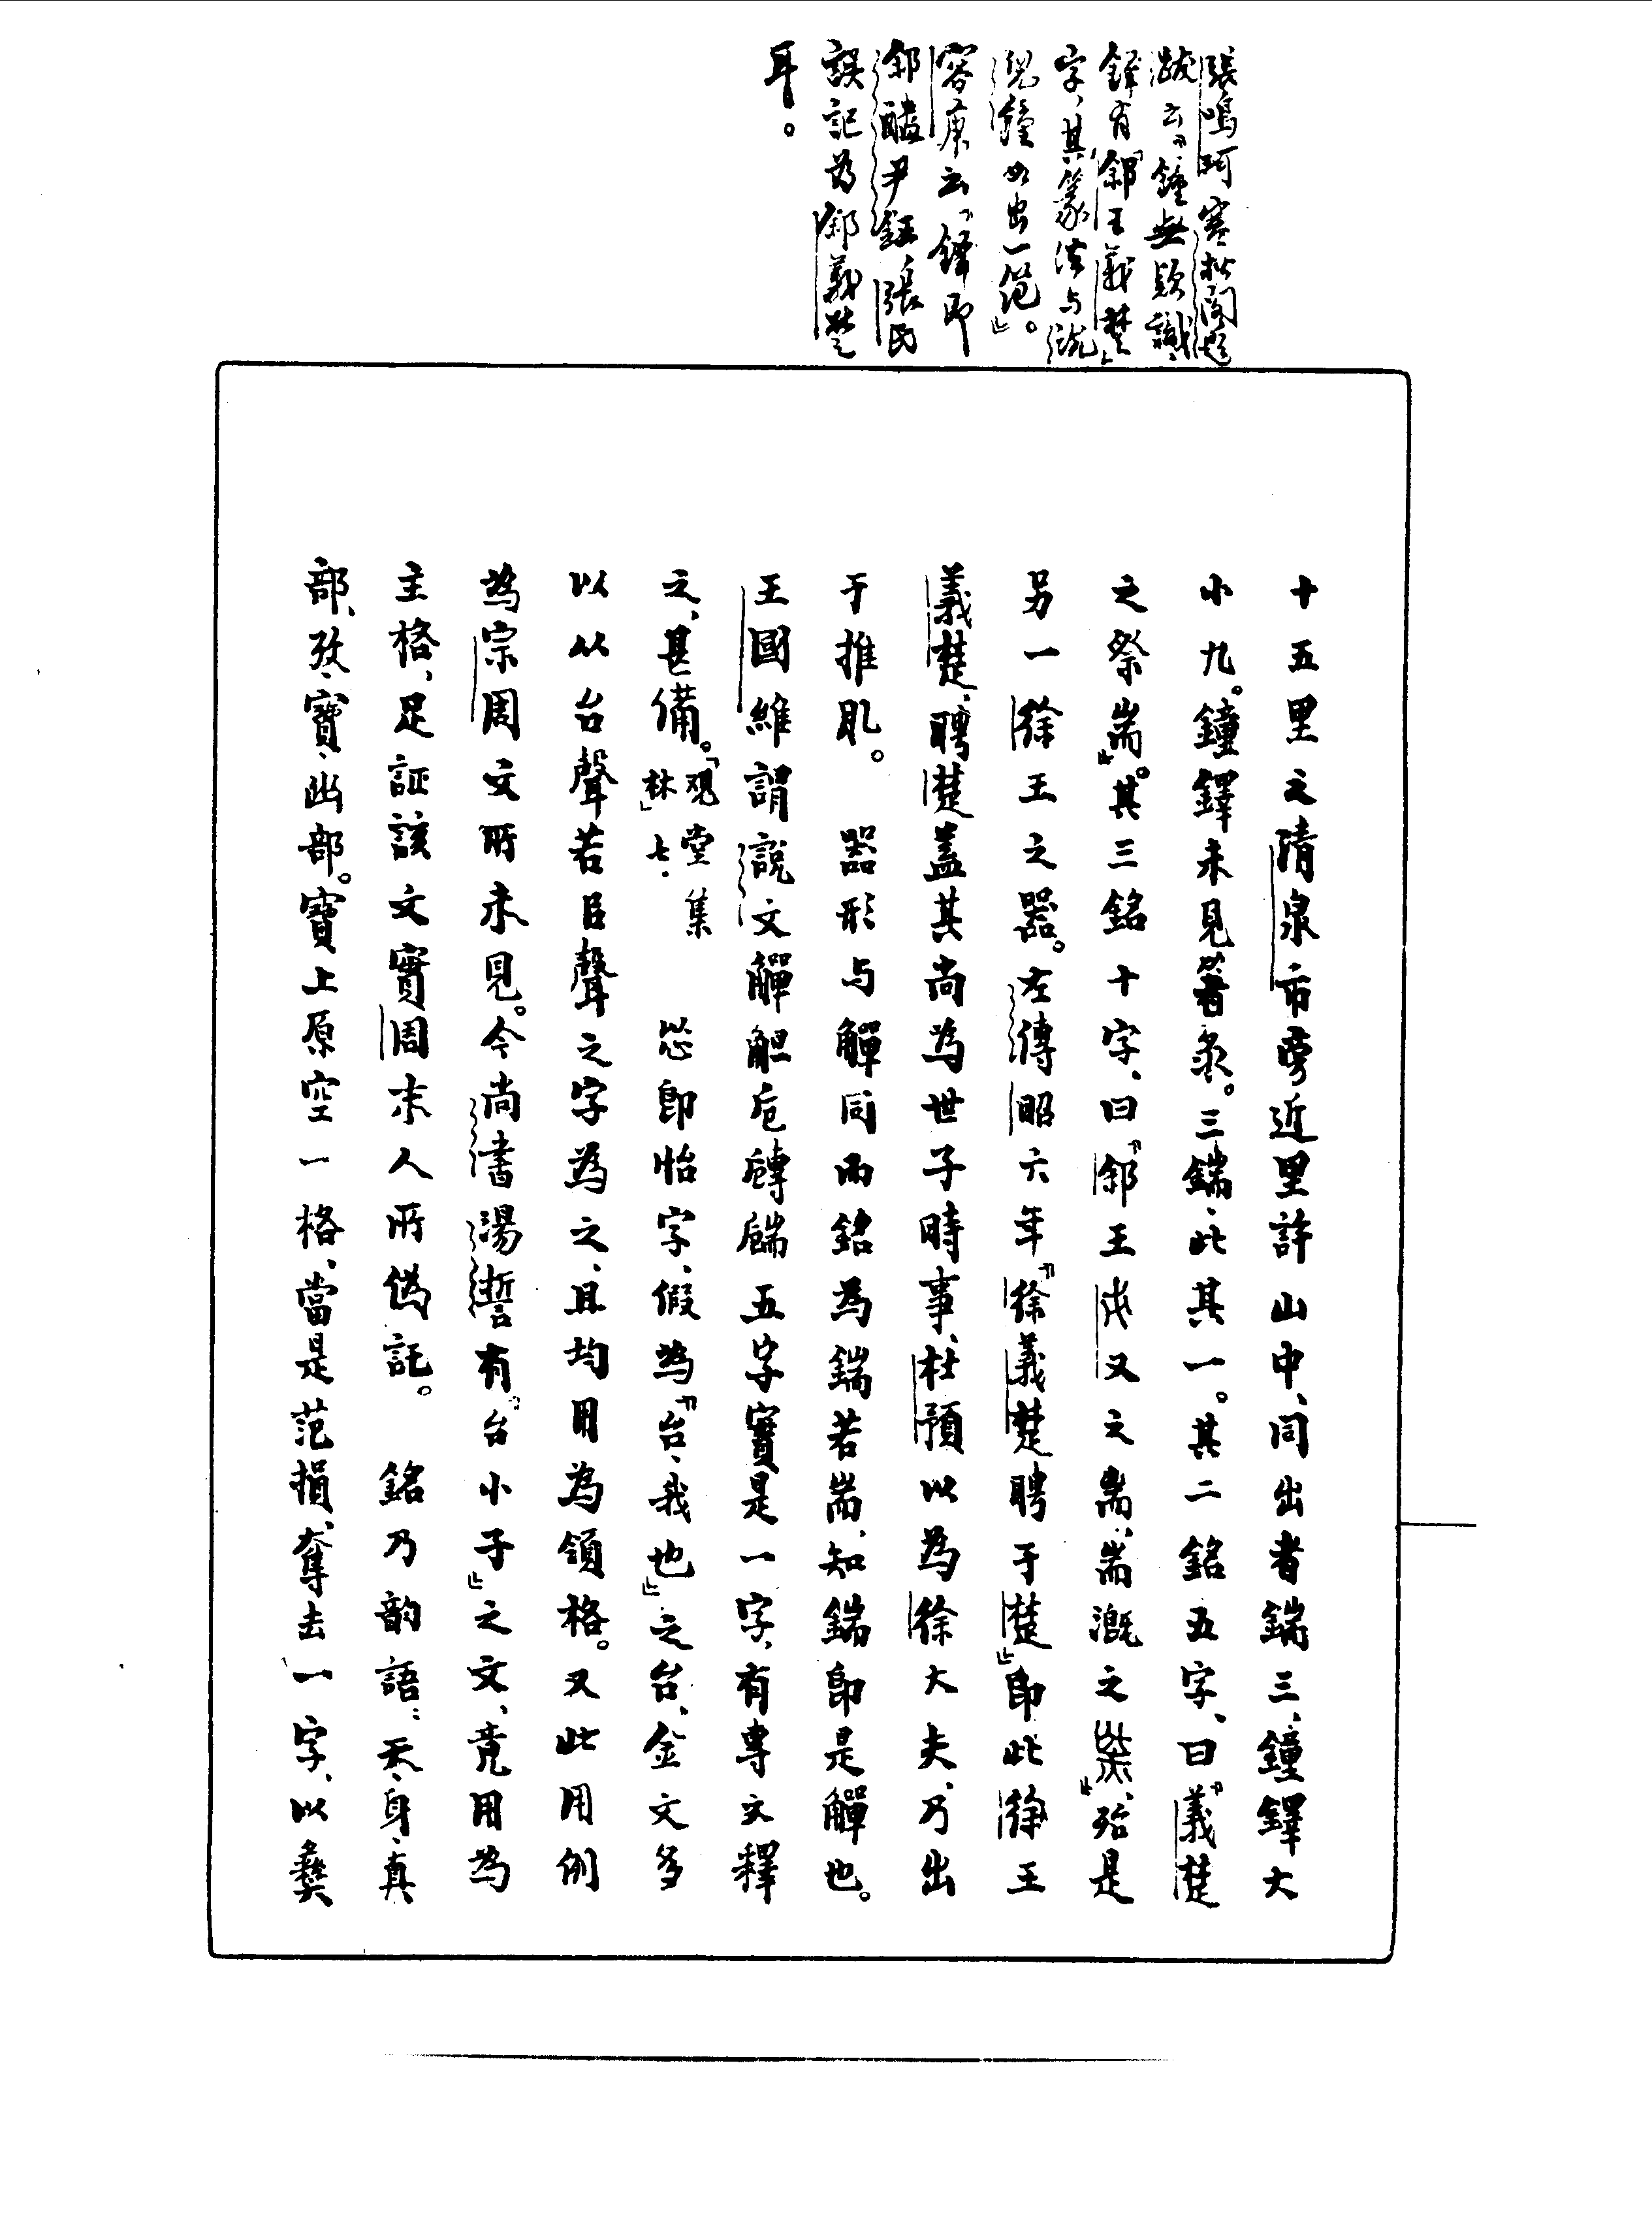 張鳴珂寒松閣題
跋云『鐘無款識、
鐸有「䣄王義楚」
字、其篆法与沇
兒鐘如出一笵』。
容庚云『鐸即
䣄𨟭尹鉦、張氏
誤記為䣄義楚
耳。
十五里之清泉市旁近里許山中、同出者鍴三、鐘鐸大
小九。鐘鐸未見箸彔。三鍴、此其一。其二銘五字、曰『義楚
之祭耑』。其三銘十字、曰『䣄王又之耑、耑溉之』、殆是
另一徐王之器。左傳昭六年『徐義楚聘于楚』即此徐王
義楚、聘楚盖其尚為世子時事、杜預以為徐大夫、乃出
于推肊。　器形与觶同而銘為鍴若耑、知鍴即是觶也。
王國維謂說文觶觛卮𡭐𨄔五字實是一字、有專文釋
之、甚備。『观堂集
林』七.　㠯即怡字、假為『台、我也』之台、金文多
以从台聲若㠯聲之字為之、且均用為領格。又此用例
為宗周文所未見。今尚書湯誓有『台小子』之文、竟用為
主格、足証該文實周末人所偽託。　銘乃韵語：天、身、真
部、孜、寶、幽部。寶上原空一格、當是范損、奪去一字、以彝